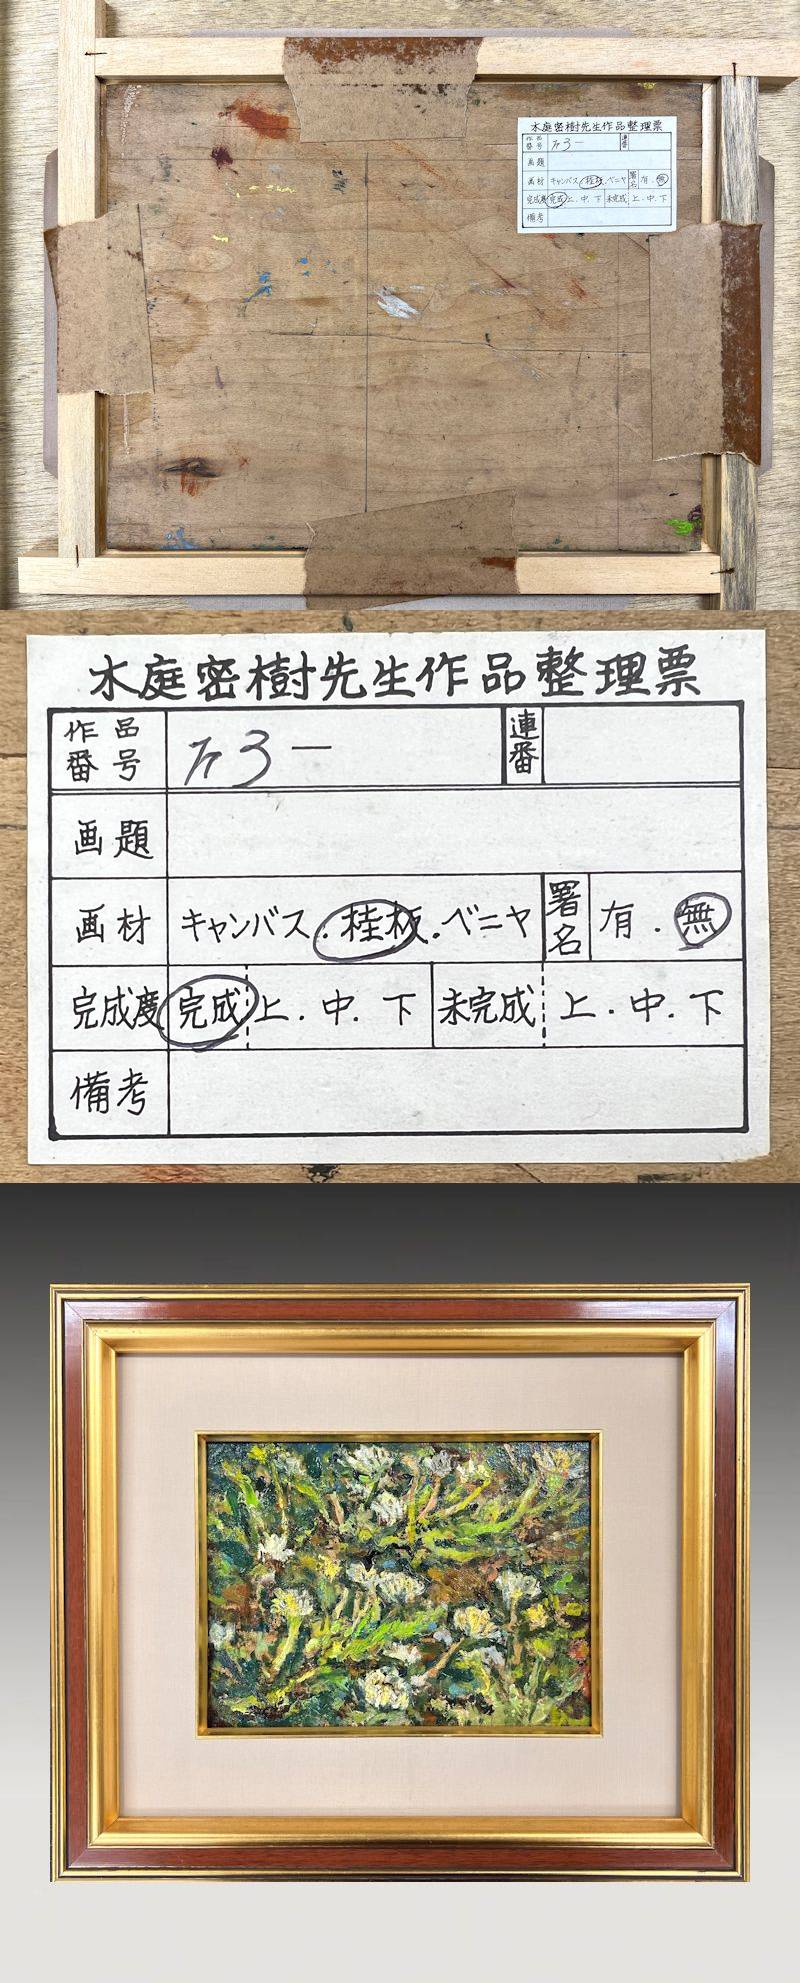 木庭密樹先生作品整理票
作品番号 連番
画題
画材 キャンバス.桂板.ベニヤ 署名 有.無
完成度 完成 上.中.下 未完成 上.中.下
備考
木庭密樹先生作品整理票
作品番号 3一 連番
画題
画材 キャンバス.桂板.ベニヤ 署名 有.無
完成度 完成 上.中.下 未完成 上.中.下
備考